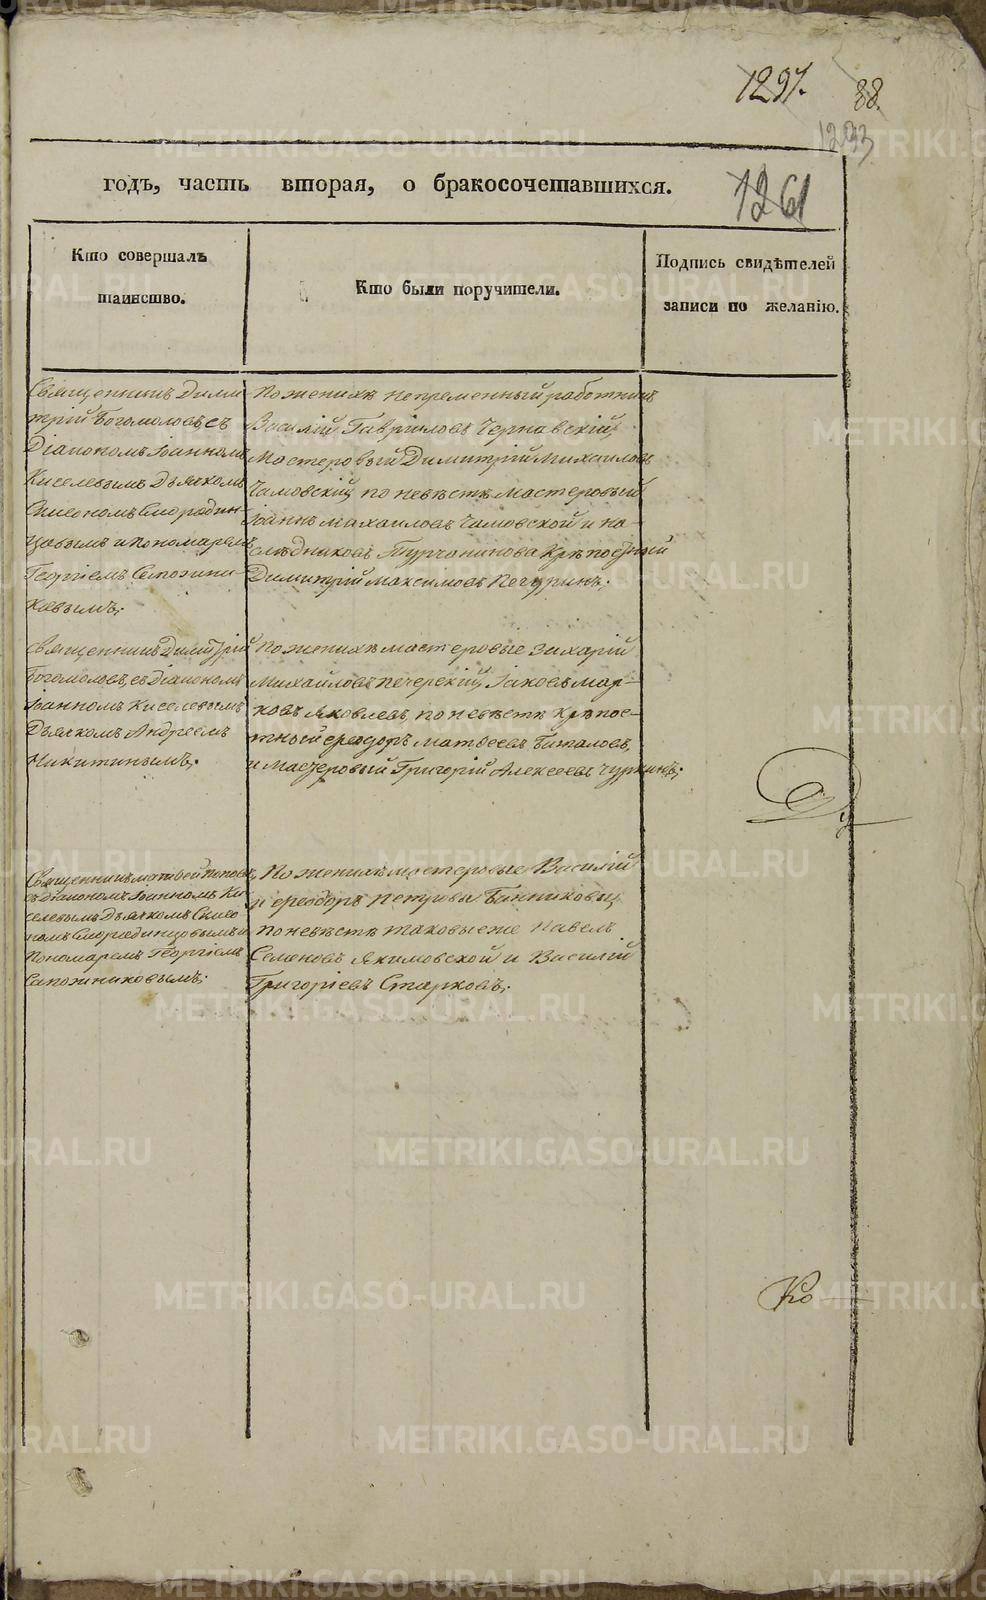 1297.
88.
1293
годъ, часть вторая, о бракосочетавшихся.
1261
Кто совершалъ
таинство.
Кто были поручители.
Подпись свидѣтелей
записи по желанію.
Священникъ Дими
трій Богомоловъ съ
Діакономъ Іоанномъ
Киселевымъ Дьячкомъ
Симеономъ Смородин
цовымъ и Пономаремъ
Георгіемъ Сапожни
ковымъ;
По женихѣ непременный работникъ
Василій Гавриловъ Чернавскій,
Мастеровый Димитрій Михаиловъ
Чамовскій, по невѣстѣ Мастеровый
Іоаннъ Михаиловъ Чамовской и на-
слѣдниковъ Турчанинова Крѣпостный
Димитрій Максимовъ Печуринъ;
Священникъ Димитрій
Богомоловъ, съ Діакономъ
Іоанномъ Киселевымъ
Дьячкомъ Андреемъ
Никитинымъ;
По женихѣ мастеровые Захарій
Михайловъ Печерскій, Іаковъ Мар-
ковъ Яковлевъ, по невѣстѣ Крѣпос-
тный Ѳеодоръ Матвеевъ Биталовъ,
и Мастеровый Григорій Алексеевъ Чуркинъ;
Священникъ Матвей Поповъ
съ Діакономъ Іоанномъ Ки
селевымъ Дьячкомъ Симео
номъ Смородинцовымъ и
Пономаремъ Георгіемъ
Сапожниковымъ;
По женихѣ мастеровые Василій
и Ѳеодоръ Петровы Банниковы,
по невѣстѣ таковые же Павелъ
Семеновъ Якимовской и Василій
Григоріевъ Старковъ;
Ко
METRIKI.GASO-URAL.RU